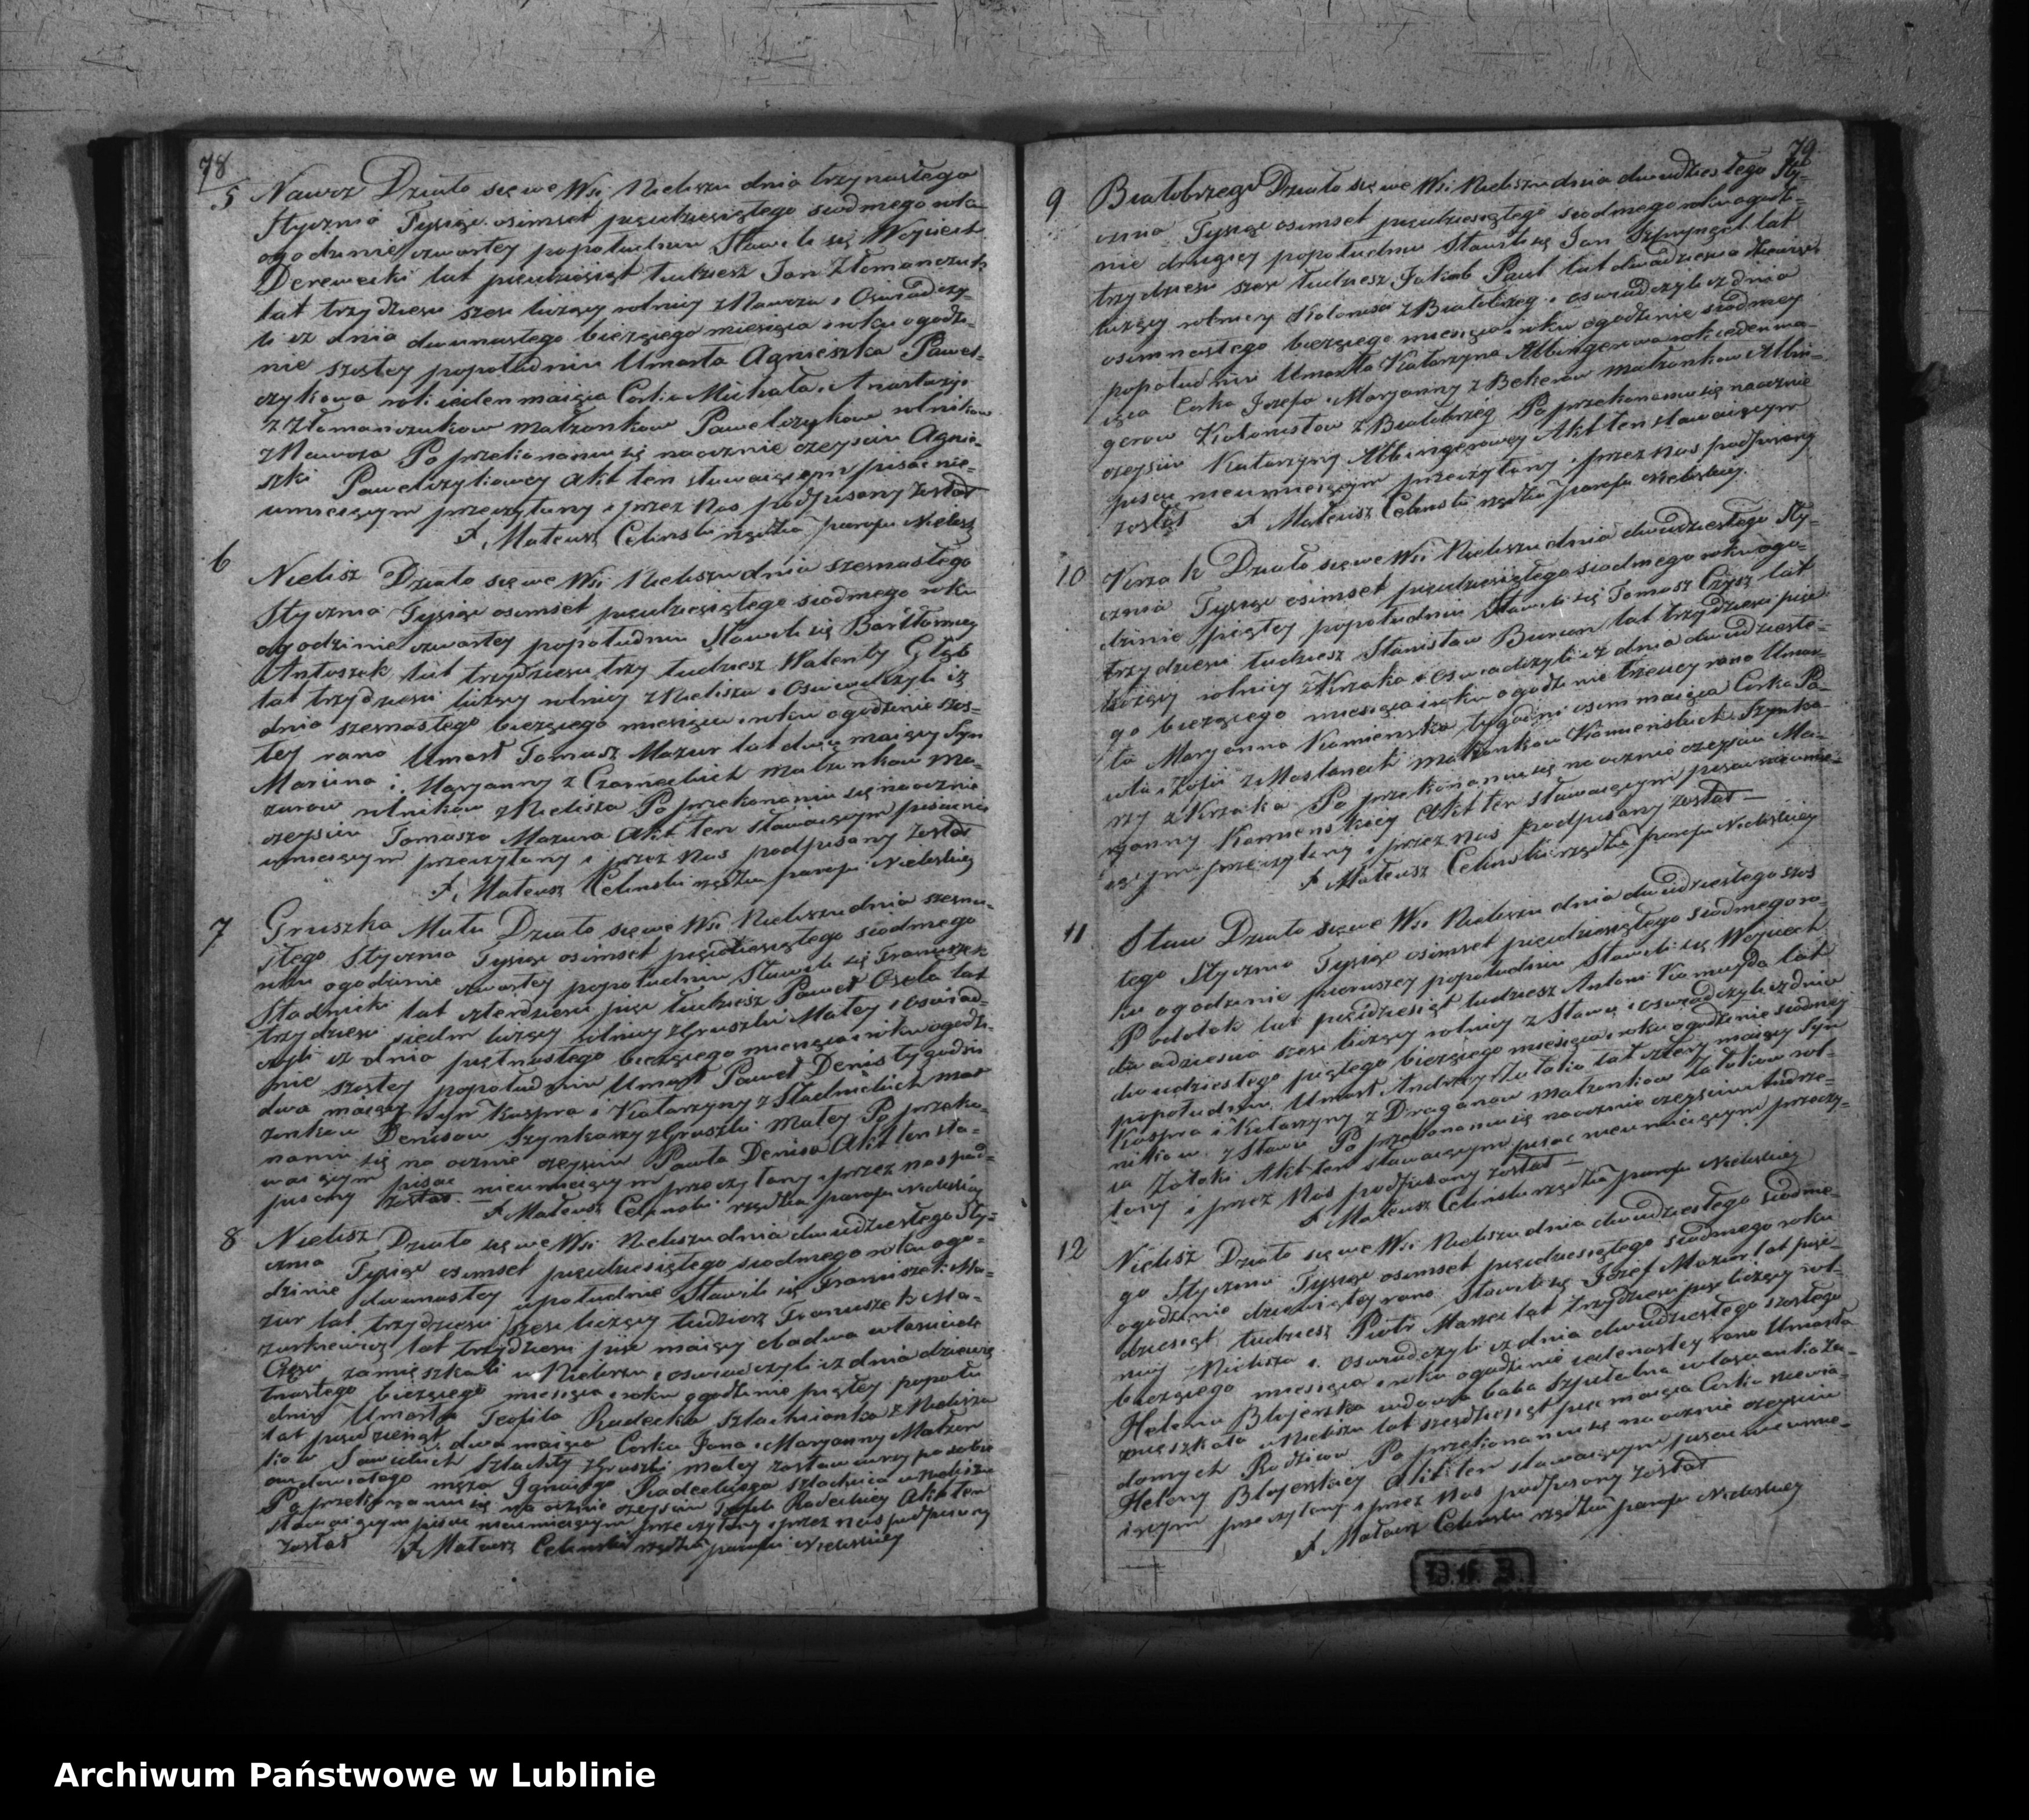 78
5 Nawoz Działo się we Wsi Nieliszu dnia trzynastego
Stycznia Tysiąc osimset pięcdziesiątego siodmego roku
ogodzinie czwartey popołudniu Stawili się Woyciech
Derewecki lat pięcdziesiąt tudziesz Jan Złomanczuk
lat trzydziesci szesc liczący rolnicy z Nawoza i Oswiadczy-
li iz dnia dwunastego bieżącego miesiąca i roku ogodzi-
nie szostey popołudniu Umarła Agnieszka Pawel-
czykowa rok ieden maiąca Corka Michała i Anastazyi
z Złomanczukow małzonkow Pawelczykow rolnikow
z Nawoza Po przekonaniu się naocznie ozeysciu Agnie-
szki Pawelczykowey Akt ten stawaiącym pisac nie-
umieiącym przeczytany i przez Nas podpisany został
X. Mateusz Celinski rządca parafii Nielisz
6 Nielisz Działo się we Wsi Nieliszu dnia szesnastego
Stycznia Tysiąc osimset pięcdziesiątego siodmego roku
ogodzinie czwartey popołudniu Stawili się Bartłomiey
Antoszek lat trzydziesci trzy tudziesz Walenty Głąb
lat trzydziesci liczący rolnicy z Nielisza i Oswiadczyli iż
dnia szesnastego bieżącego miesiąca i roku ogodzinie szos-
tey rano Umarł Tomasz Mazur lat dwa maiący Syn
Marcina i Maryanny z Czarneckich małzonkow Ma-
zurow rolnikow z Nielisza Po przekonaniu się naocznie
ozeysciu Tomasza Mazura Akt ten stawaiącym pisac nie
umieiącym przeczytany i przez Nas podpisany został
X. Mateusz Celinski rządca parafii Nieliskiey
7 Gruszka Mała Działo się we Wsi Nieliszu dnia szesna-
stego Stycznia Tysiąc osimset pięcdziesiątego siodmego
roku ogodzinie czwartey popołudniu Stawili się Franciszek
Stadnicki lat czterdziesci pięc tudziesz Paweł Oseła lat
trzydziesci siedm liczący rolnicy z Gruszki Małey i oswiad-
czyli iz dnia piętnastego bieżącego miesiąca i roku ogodzi-
nie szostey popołudniu Umarł Paweł Denis tygodni
dwa maiący Syn Kaspra i Katarzyny z Stadnickich mał
zonkow Denisow Szynkarzy z Gruszki Małey Po przeko-
naniu się na ocznie ozeysciu Pawła Denisa Akt ten sta-
waiącym pisac nieumieiącym przeczytany i przez nas pod-
pisany został X. Mateusz Celinski rządca parafii Nieliskiey
8 Nielisz Działo się we Wsi Nieliszu dnia dwudziestego Sty-
cznia Tysiąc osimset pięcdziesiątego siodmego roku ogo-
dzinie dwunastey wpołudnie Stawili się Franciszek Ma-
zur lat trzydziesci szesc liczący tudziesz Franciszek Ma-
zurkiewicz lat trzydziesci pięc maiący obadwa własciciele
Częsci zamięszkali w Nieliszu i oswiadczyli iz dnia dziewię
tnastego bieżącego miesiąca i roku ogodzinie piątey popołu
dniu Umarła Teofila Radecka Szlachcianka z Nielisza
lat pięcdziesiąt dwa maiąca Corka Jana i Maryanny Małzon
kow Sawickich Szlachty z Gruszki małey zostawiwszy po sobie
owdowiałego męza Ignacego Radeckiego Szlachcica w Nieliszu
Po przekonaniu się na ocznie ozeysciu Teofili Radeckiey Akt ten
stawaiącym pisac nieumieiącym przeczytany i przez nas podpisany
został X. Mateusz Celinski rządca parafii Nieliskiey
79
9 Białobrzegi Działo się we Wsi Nieliszu dnia dwudziestego Sty-
cznia Tysiąc osimset pięcdziesiątego siodmego roku ogodzi-
nie drugiey popołudniu Stawili się Jan lat
trzydziesci szesc tudziesz Jakob Paul lat dwadziescia dziewięc
liczący rolnicy Kolonisci z Białobrzeg i oswiadczyli iz dnia
osimnastego bieżącego miesiąca i roku ogodzinie siodmey
popołudniu Umarła Katarzyna Albingerowa rok ieden ma-
iąca Corka Jozefa i Maryanny z Bekerow małzonkow Albin-
gerow Kolonistow z Białobrzeg Po przekonaniu się naocznie
ozeysciu Katarzyny Albingerowey Akt ten stawaiącym
pisac nieumieiącym przeczytany i przez Nas podpisany
został X. Mateusz Celinski rządca parafii Nieliskiey.
10 Krzak Działo się we Wsi Nieliszu dnia dwudziestego Sty-
cznia Tysiąc osimset pięcdziesiątego siodmego roku ogo-
dzinie piątey popołudniu Stawili się Tomasz Czysz lat
trzydziesci tudziesz Stanisław Burcon lat trzydziesci pięc
liczący rolnicy z Krzaka i Oswiadczyli iż dnia dwudzieste-
go bieżącego miesiąca i roku ogodzinie trzeciey rano Umar-
ła Maryanna Kamienska tygodni osim maiąca Corka Pa-
wła i Zofii z Maslanek małzonkow Kamienskich Szynka-
rzy z Krzaka Po przekonaniu się na ocznie ozeysciu Ma-
ryanny Kamienskiey Akt ten stawaiącym pisac nieumie-
iącym przeczytany i przez nas podpisany został
X Mateusz Celinski rządca parafii Nieliskiey
11 Staw Działo się we Wsi Nieliszu dnia dwudziestego szos
tego Stycznia Tysiąc osimset pięcdziesiątego siodmego ro-
ku ogodzinie pierwszey popołudniu Stawili się Woyciech
Podolak lat pięcdziesiąt tudziesz Antoni Kamuyda lat
dwadziescia szesc liczący rolnicy z Stawu i oswiadczyli iz dnia
dwudziestego piątego bieżącego miesiąca i roku ogodzinie siodmey
popołudniu Umarł Andrzey Załoka lat cztery maiący Syn
Kaspra i Katarzyny z Draganow małzonkow Załokow rol-
nikow z Stawu Po przekonaniu się naocznie ozeysciu Andrze-
ia Załoki Akt ten stawaiącym pisac nieumieiącym przeczy-
tany i przez Nas podpisany został
X Mateusz Celinski rządca parafii Nieliskiey
12 Nielisz Działo się we Wsi Nieliszu dnia dwudziestego siodme-
go Stycznia Tysiąc osimset pięcdziesiątego siodmego roku
ogodzinie dziewiątey rano Stawili się Jozef Mazur lat pięc-
dziesiąt tudziesz Piotr lat trzydziesci pięc liczący rol-
nicy z Nielisza i oswiadczyli iz dnia dwudziestego szostego
bieżącego miesiąca i roku ogodzinie iedenastey rano Umarła
Helena Błajerska wdowa baba szpitalna własciantka za-
mięszkała w Nieliszu lat szescdziesiąt pięc maiąca Corka niewia-
domych Rodzicow Po przekonaniu się na ocznie ozeysciu
Heleny Błajerskiey Akt ten stawaiącym pisac nieumie-
iącym przeczytany i przez Nas podpisany został
X Mateusz Celinski rządca parafii Nieliskiey
Archiwum Państwowe w Lublinie